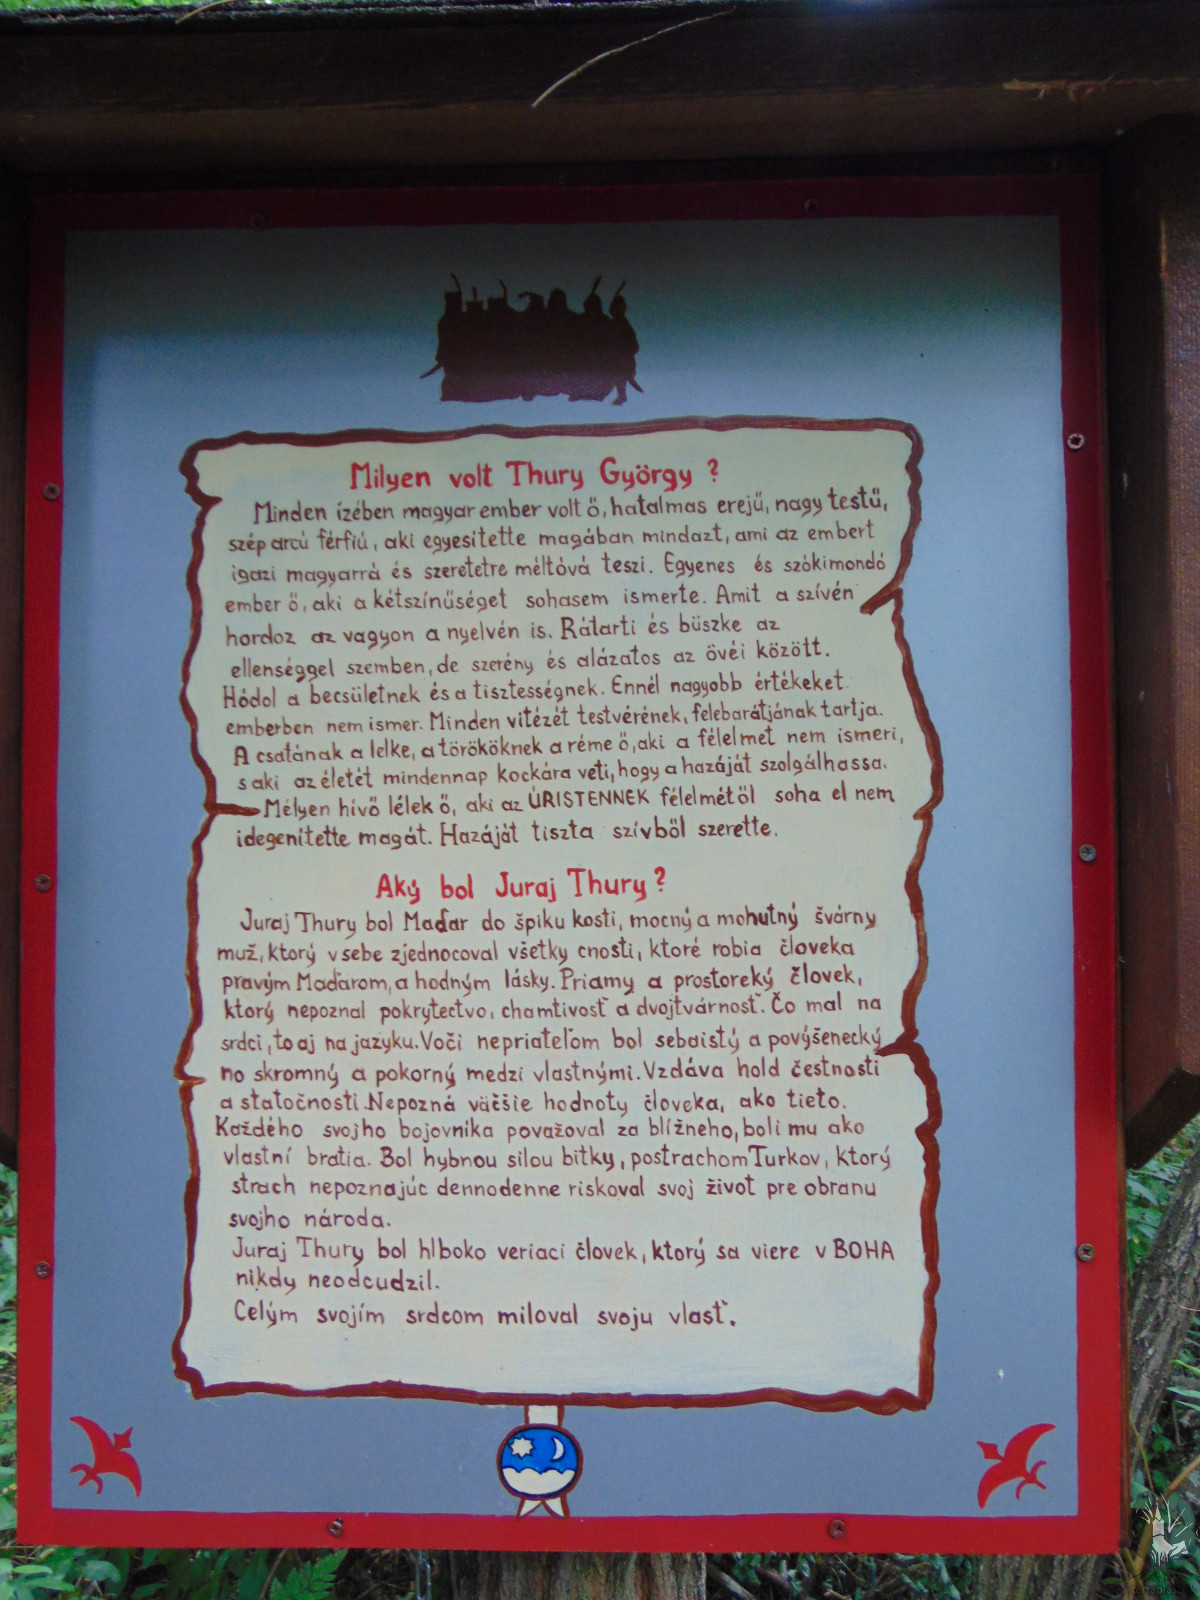 Milyen volt Thury György ?
Minden ízében magyar ember volt ő, hatalmas erejű, nagy testű,
szép arcú férfiú, aki egyesítette magában mindazt, ami az embert
igazi magyarrá és szeretetre méltóvá teszi. Egyenes és szókimondó
ember ő, aki a kétszínűséget sohasem ismerte. Amit a szívén
hordoz az vagyon a nyelvén is. Rátarti és büszke az
ellenséggel szemben, de szerény és alázatos az övéi között.
Hódol a becsületnek és a tisztességnek. Ennél nagyobb értékeket
emberben nem ismer. Minden vitézét testvérének, felebarátjának tartja.
A csatának a lelke, a törököknek a réme ő, aki a félelmet nem ismeri,
s aki az életét mindennap kockára veti, hogy a hazáját szolgálhassa.
Mélyen hívő lélek ő, aki az ÚRISTENNEK félelmétől soha el nem
idegenítette magát. Hazáját tiszta szívből szerette.
Aký bol Juraj Thury ?
Juraj Thury bol Maďar do špiku kosti, mocný a mohutný švárny
muž, ktorý v sebe zjednocoval všetky cnosti, ktoré robia človeka
pravým Maďarom, a hodným lásky. Priamy a prostoreký človek,
ktorý nepoznal pokrytectvo, chamtivosť a dvojtvárnosť. Čo mal na
srdci, to aj na jazyku. Voči nepriateľom bol sebaistý a povýšenecký
no skromný a pokorný medzi vlastnými. Vzdáva hold čestnosti
a statočnosti. Nepozná väčšie hodnoty človeka, ako tieto.
Každého svojho bojovníka považoval za blížneho, boli mu ako
vlastní bratia. Bol hybnou silou bitky, postrachom Turkov, ktorý
strach nepoznajúc dennodenne riskoval svoj život pre obranu
svojho národa.
Juraj Thury bol hlboko veriaci človek, ktorý sa viere v BOHA
nikdy neodcudzil.
Celým svojím srdcom miloval svoju vlasť.